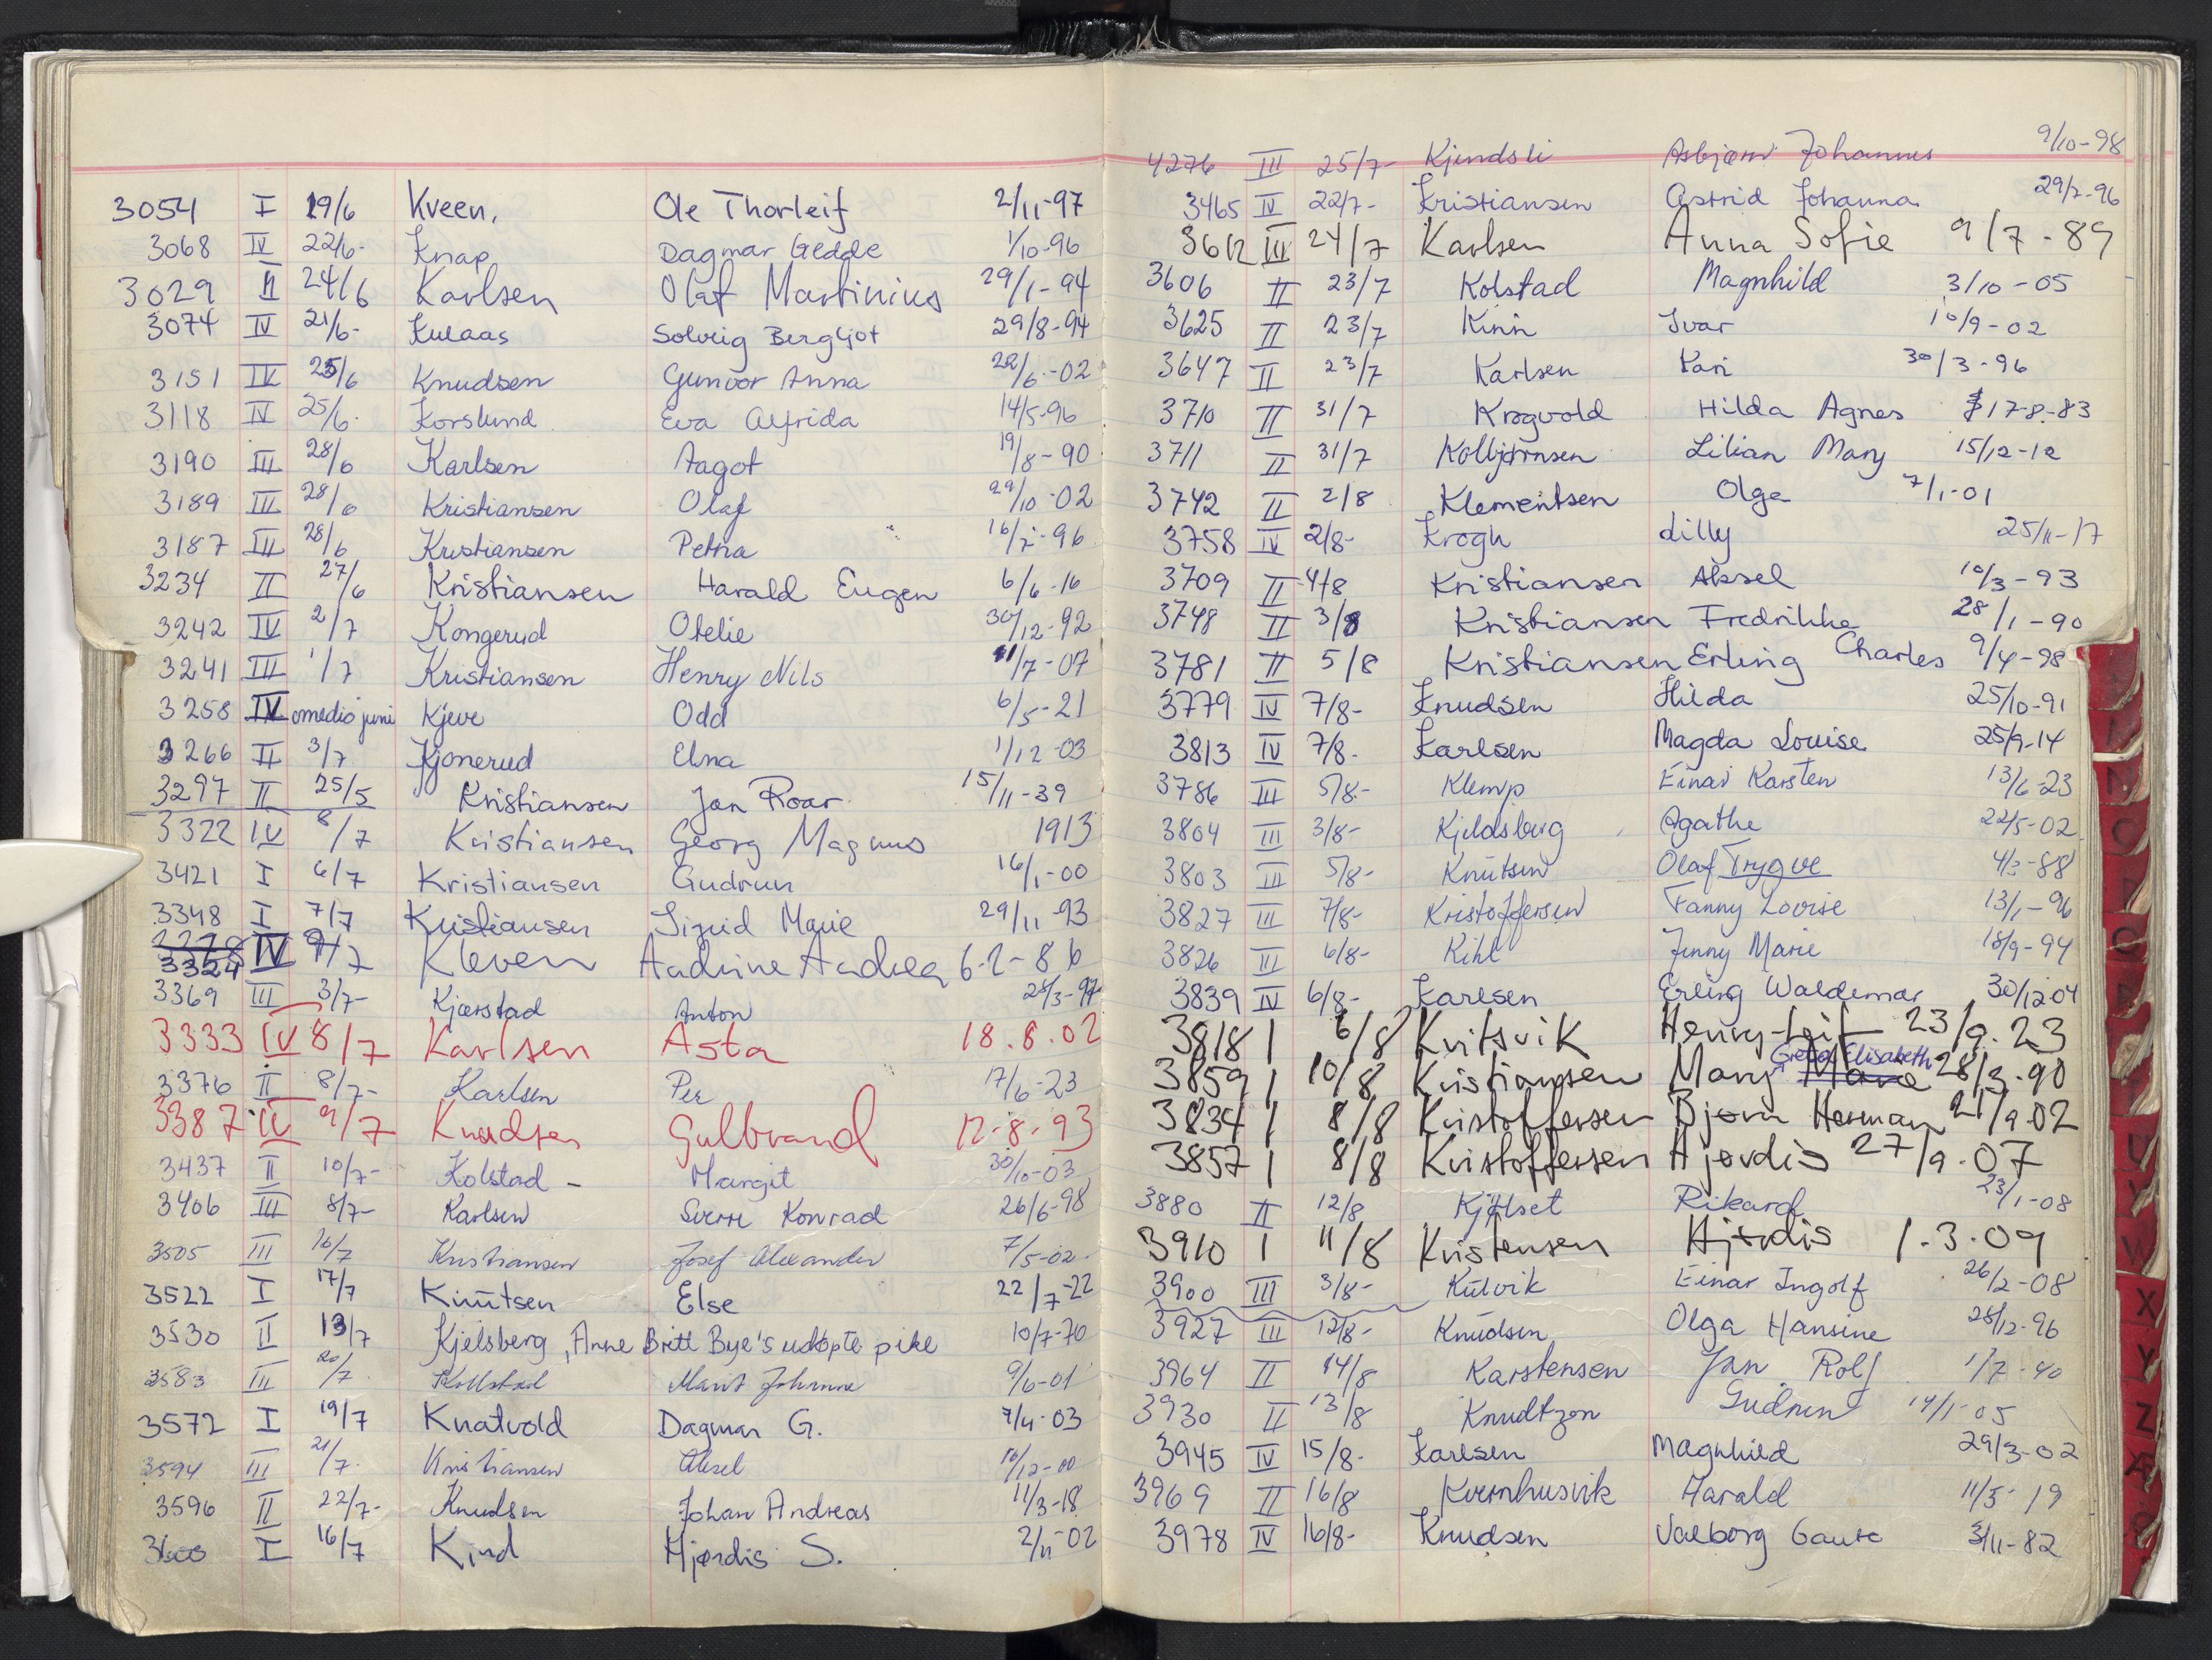 3054 I 19/6 Kveen, Ole Thorleif 2/11-97
3068 IV 22/6- Knap Dagmar Gedde 1/10-96
3029 II 24/6 Karlsen Olaf Martinius 29/1-94
3074 IV 21/6- Kulaas Solveig Bergljot 29/8-94
3151 IV 25/6 Knudsen Gunvor Anna 22/6-02
3118 IV 25/6- Korslund Eva Alfrida 14/5-96
3190 III 28/6 Karlsen Aagot 19/8-90
3189 III 28/6 Kristiansen Olaf 29/10-02
3187 III 28/6 Kristiansen Petra 16/7-96
3234 II 27/6 Kristiansen Harald Eugen 6/6-16
3242 IV 2/7 Kongerud Otelie 30/12-92
3241 III 1/7 Kristiansen Henry Nils 11/7-07
3258 IV omedio juni Kjeve Odd 6/5-21
3266 II 3/7 Kjonerud Elna 1/12-03
3297 II 25/5 Kristiansen Jan Roar 15/11-39
3322 IV 8/7 Kristiansen Georg Magnus 1913
3421 I 6/7 Kristiansen Gudrun 16/1-00
3348 I 7/7 Kristiansen Sigrid Marie 29/11-93
3324 IV 9/7 Kleven Andrine Andrea 6-2-86
3369 III 3/7- Kjærstad Anton 28/3-97
3333 IV 8/7 Karlsen Asta 18.8.02
3376 II 8/7- Karlsen Per 17/6-23
3387 IV 9/7 Knudsen Gulbrand 12-8-93
3437 II 10/7- Kolstad - Margit 30/10-03
3406 III 8/7- Karlsen Sverre Konrad 26/6-98
3505 III 16/7 Kristiansen Josef Alexander 7/5-02
3522 I 17/7 Knutsen Else 22/7-22
3530 II 13/7 Kjelsberg, Anne Britt Bye's udøpte pike 10/7-70
3583 III 20/7 Kollstad Marit Johanne 9/6-01
3572 I 19/7 Knatvold Dagmar G. 7/4-03
3594 III 21/7 Kristiansen Aksel 16/12-00
3596 II 22/7- Knudsen Johan Andreas 11/3-18
3600 I 16/7 Kind Hjørdis S. 2/11-02
4276 III 25/7- Kjendsli Asbjørn Johannes 9/10-98
3465 IV 22/7- Kristiansen Astrid Johanna 29/7-96
3612 III 24/7 Karlsen Anna Sofie 9/7-89
3606 II 23/7 Kolstad Magnhild 3/10-05
3625 II 23/7 Kinn Ivar 10/9-02
3647 II 23/7 Karlsen Kari 30/3-96
3710 II 31/7 Krogvold Hilda Agnes 17-8-83
3711 II 31/7 Kolbjørnsen Lilian Mary 15/12-12
3742 II 2/8 Klementsen Olga 7/1-01
3758 IV 2/8- Krogh Lilly 25/11-17
3709 II 4/8 Kristiansen Aksel 10/3-93
3748 II 3/8 Kristiansen Fredrikke 28/1-90
3781 II 5/8 Kristiansen Erling Charles 9/4-98
3779 IV 7/8- Knudsen Hilda 25/10-91
3813 IV 7/8- Karlsen Magda Louise 25/9-14
3786 III 5/8- Klemp Einar Karsten 13/6-23
3804 III 3/8- Kjeldsberg Agathe 22/5-02
3803 III 5/8- Knutsen Olaf Trygve 4/2-88
3827 III 7/8- Kristoffersen Fanny Lovise 13/1-96
3826 III 6/8- Kihl Jenny Marie 18/9-94
3839 IV 6/8- Karlsen Erling Waldemar 30/12-04
3818 I 6/8 Kvitsvik Henry-Leif 23/9.23
3859 I 10/8 Kristiansen Mary Greta Elisabeth 28/3-90
3834 I 8/8 Kristoffersen Bjørn Herman 21/9-02
3857 I 8/8 Kristoffersen Hjørdis 27/9-07
3880 II 12/8 Kjølset Rikard 23/1-08
3910 I 11/8 Kristensen Hjørdis 1.3.09
3900 III 3/8- Kulvik Einar Ingolf 26/2-08
3927 III 12/8- Knudsen Olga Hansine 28/12-96
3964 II 14/8 Karstensen Jan Rolf 1/7-40
3930 II 13/8 Knudtzon Gudrun 14/1-05
3945 IV 15/8- Karlsen Magnhild 29/3-02
3969 II 16/8 Kvernhusvik Harald 11/5-19
3978 IV 16/8- Knudsen Valborg Gaute 3/11-82
X
Y
Z
Æ